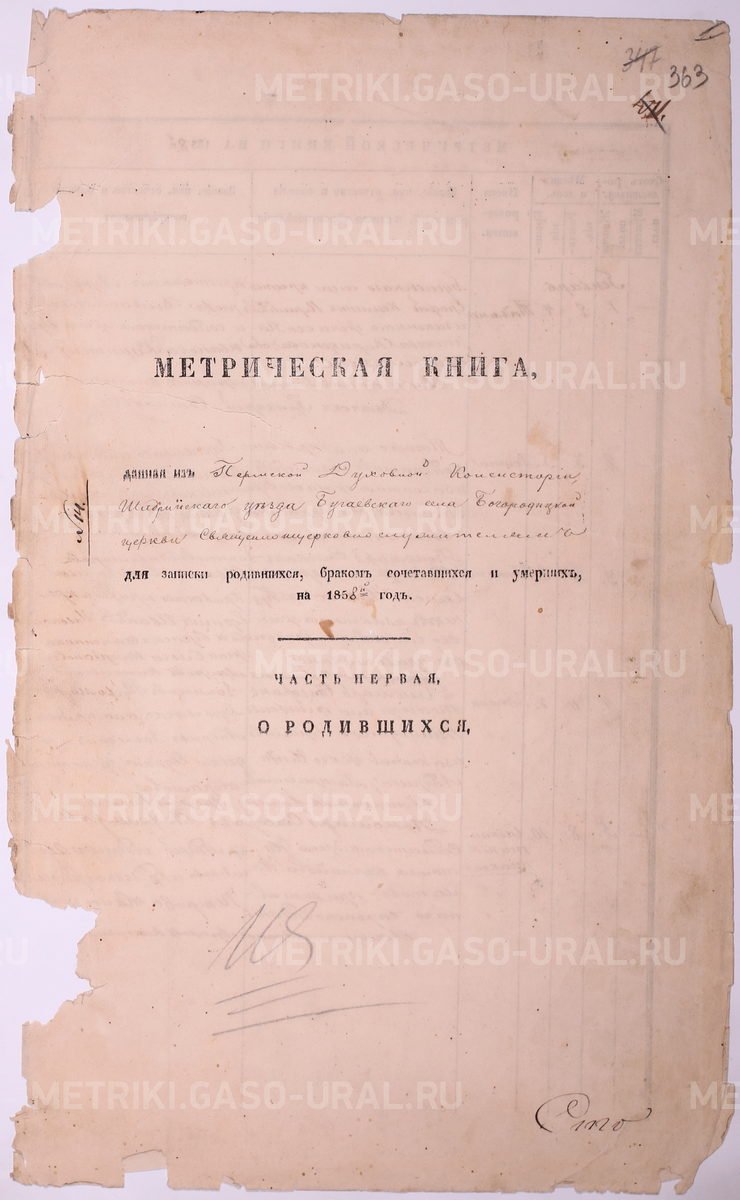 347 363
МЕТРИЧЕСКАЯ КНИГА,
данная изъ Пермской Духовной Консисторіи,
Шадринскаго уѣзда Бугаевскаго села Богородицкой
церкви Священноцерковнослужителямъ
№ 114.
для записки родившихся, бракомъ сочетавшихся и умершихъ,
на 1858й годъ.
ЧАСТЬ ПЕРВАЯ,
О РОДИВШИХСЯ,
118
METRIKI.GASO-URAL.RU